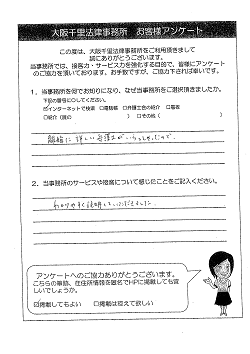 大阪千里法律事務所　お客様アンケート
この度は、大阪千里法律事務所をご利用頂きまして
誠にありがとうございます。
当事務所では、接客力・サービス力を強化する目的で、皆様にアンケート
のご協力を頂いております。お手数ですが、ご協力下されば幸いです。
1．当事務所を何でお知りになり、なぜ当事務所をご選択頂きましたか。
下記の番号に○してください。
☑インターネットで検索　□電話帳　□弁護士会の紹介　□看板
□紹介（誰の　　　　　）□その他（　　　　　）
2．当事務所のサービスや接客について感じたことをご記入ください。
わかりやすく説明していただきました。
アンケートへのご協力ありがとうございます。
こちらの筆跡、在住所情報を匿名でHPに掲載しても宜
しいでしょうか。
☑掲載してもよい　□掲載は控えて欲しい